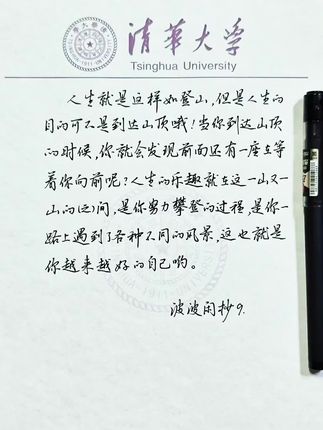 清華大学
Tsinghua University
人生就是这样如登山，但是人生的
目的可不是到达山顶哦！当你到达山顶
的时候，你就会发现前面还有一座在等
着你向前呢？人生的乐趣就在这一山又一
山的(之)间，是你努力攀登的过程，是你一
路上遇到了各种不同的风景，这也就是
你越来越好的自己哟。
波波闲抄9.